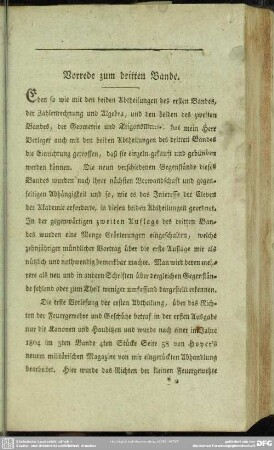 Vorrede zum dritten Bande.
Eben so wie mit den beiden Abtheilungen des ersten Bandes,
der Zahlenrechnung und Algebra, und den beiden des zweiten
Bandes, der Geometrie und Trigonometrie, hat mein Herr
Verleger auch mit den beiden Abtheilungen des dritten Bandes
die Einrichtung getroffen, daß sie einzeln gekauft und gebunden
werden können. Die neun verschiedenen Gegenstände dieses
Bandes wurden nach ihrer nächsten Verwandschaft und gegen-
seitigen Abhängigkeit und so, wie es das Interesse der Eleven
der Akademie erforderte, in diesen beiden Abtheilungen geordnet.
In der gegenwärtigen zweiten Auflage des dritten Ban-
des wurden eine Menge Erörterungen eingeschalten, welche
zehnjähriger mündlicher Vortrag über die erste Auflage mir als
nützlich und nothwendig bemerkbar machte. Man wird deren meh-
rere als neu und in andern Schriften über dergleichen Gegenstän-
de fehlend oder zum Theil weniger umfassend dargestellt erkennen.
Die erste Vorlesung der ersten Abtheilung, über das Rich-
ten der Feuergewehre und Geschütze betraf in der ersten Ausgabe
nur die Kanonen und Haubitzen und wurde nach einer im Jahre
1804 im 3ten Bande 4ten Stücke Seite 58 von Hoyer's
neuem militärischen Magazine von mir eingerückten Abhandlung
bearbeitet. Hier wurde das Richten der kleinen Feuergewehre